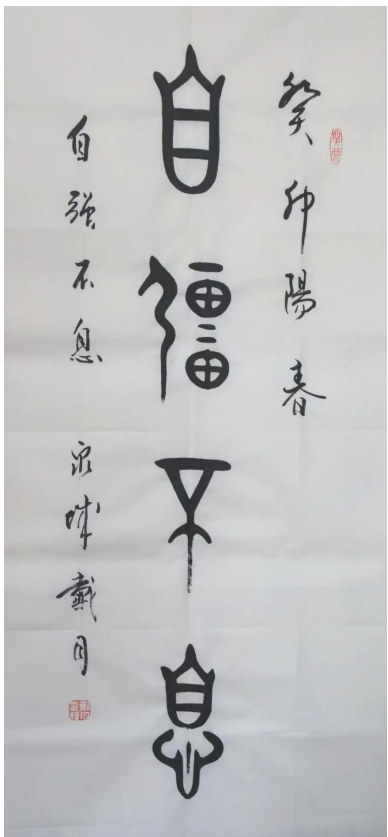 癸卯陽春
自彊不息
自強不息 泉城戴月